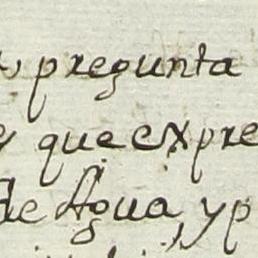 pregunta
que expre
de Agua, y p